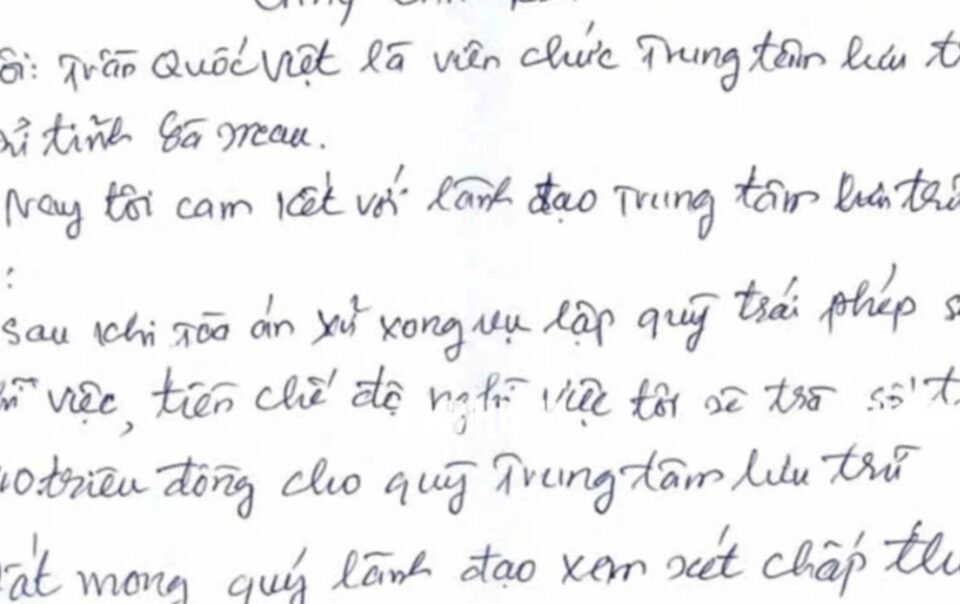 ôi: Trần Quốc Việt là viên chức Trung tâm lưu t
sử tỉnh Cà Mau.
Nay tôi cam kết với lãnh đạo Trung tâm lưu trữ
:
Sau khi Tòa án xử xong vụ lập quỹ trái phép s
việc, tiền chế độ nghỉ việc tôi sẽ trả số t
triệu đồng cho quỹ Trung tâm lưu trữ
Rất mong quý lãnh đạo xem xét chấp thu